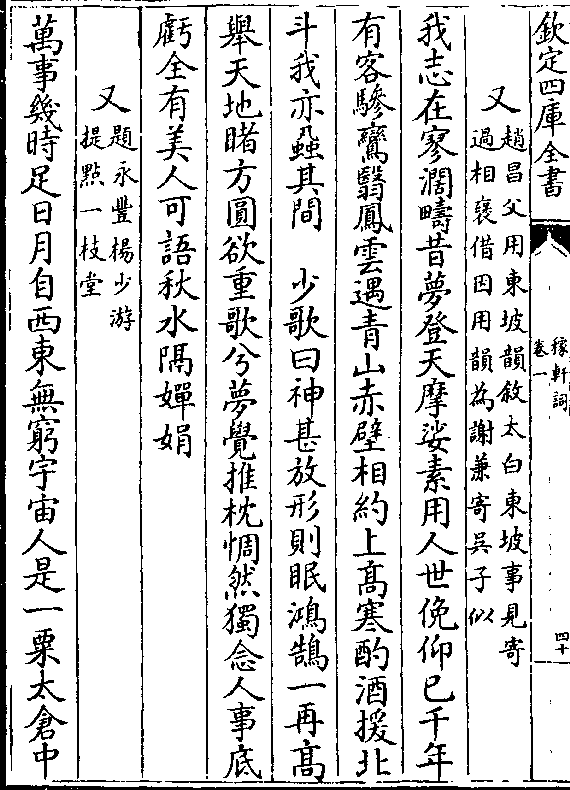 欽定四庫全書
稼軒詞
卷一
四十
又
趙昌父用東坡韻敘太白東坡事見寄
過相褒借因用韻為謝兼寄吳子似
我志在寥濶疇昔夢登天摩娑素用人世俛仰已千年
有客驂鸞翳鳳雲遇青山赤壁相約上高寒酌酒援北
斗我亦蝨其間　少歌曰神甚放形則眠鴻鵠一再高
舉天地睹方圓欲重歌兮夢覺推枕惆然獨念人事底
虧全有美人可語秋水隔嬋娟
又
題永豐楊少游
提點一枝堂
萬事幾時足日月自西東無窮宇宙人是一粟太倉中